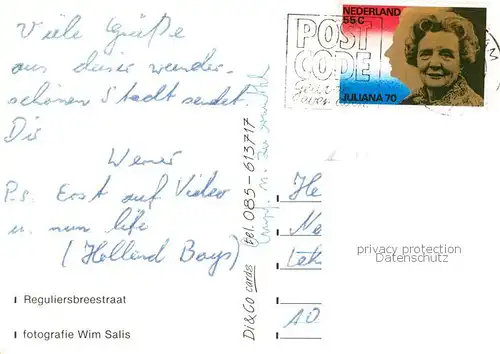 Viele Grüße
aus dieser wunder-
schönen Stadt sendet
Dir
Werner
P.s. Erst auf Video
u. nun life
(Hollend Boys)
Reguliersbreestraat
fotografie Wim Salis
Di&Co cards tel. 085-613717
NEDERLAND
55 C
JULIANA 70
POST
CODE
He
Ne
privacy protection
Datenschutz